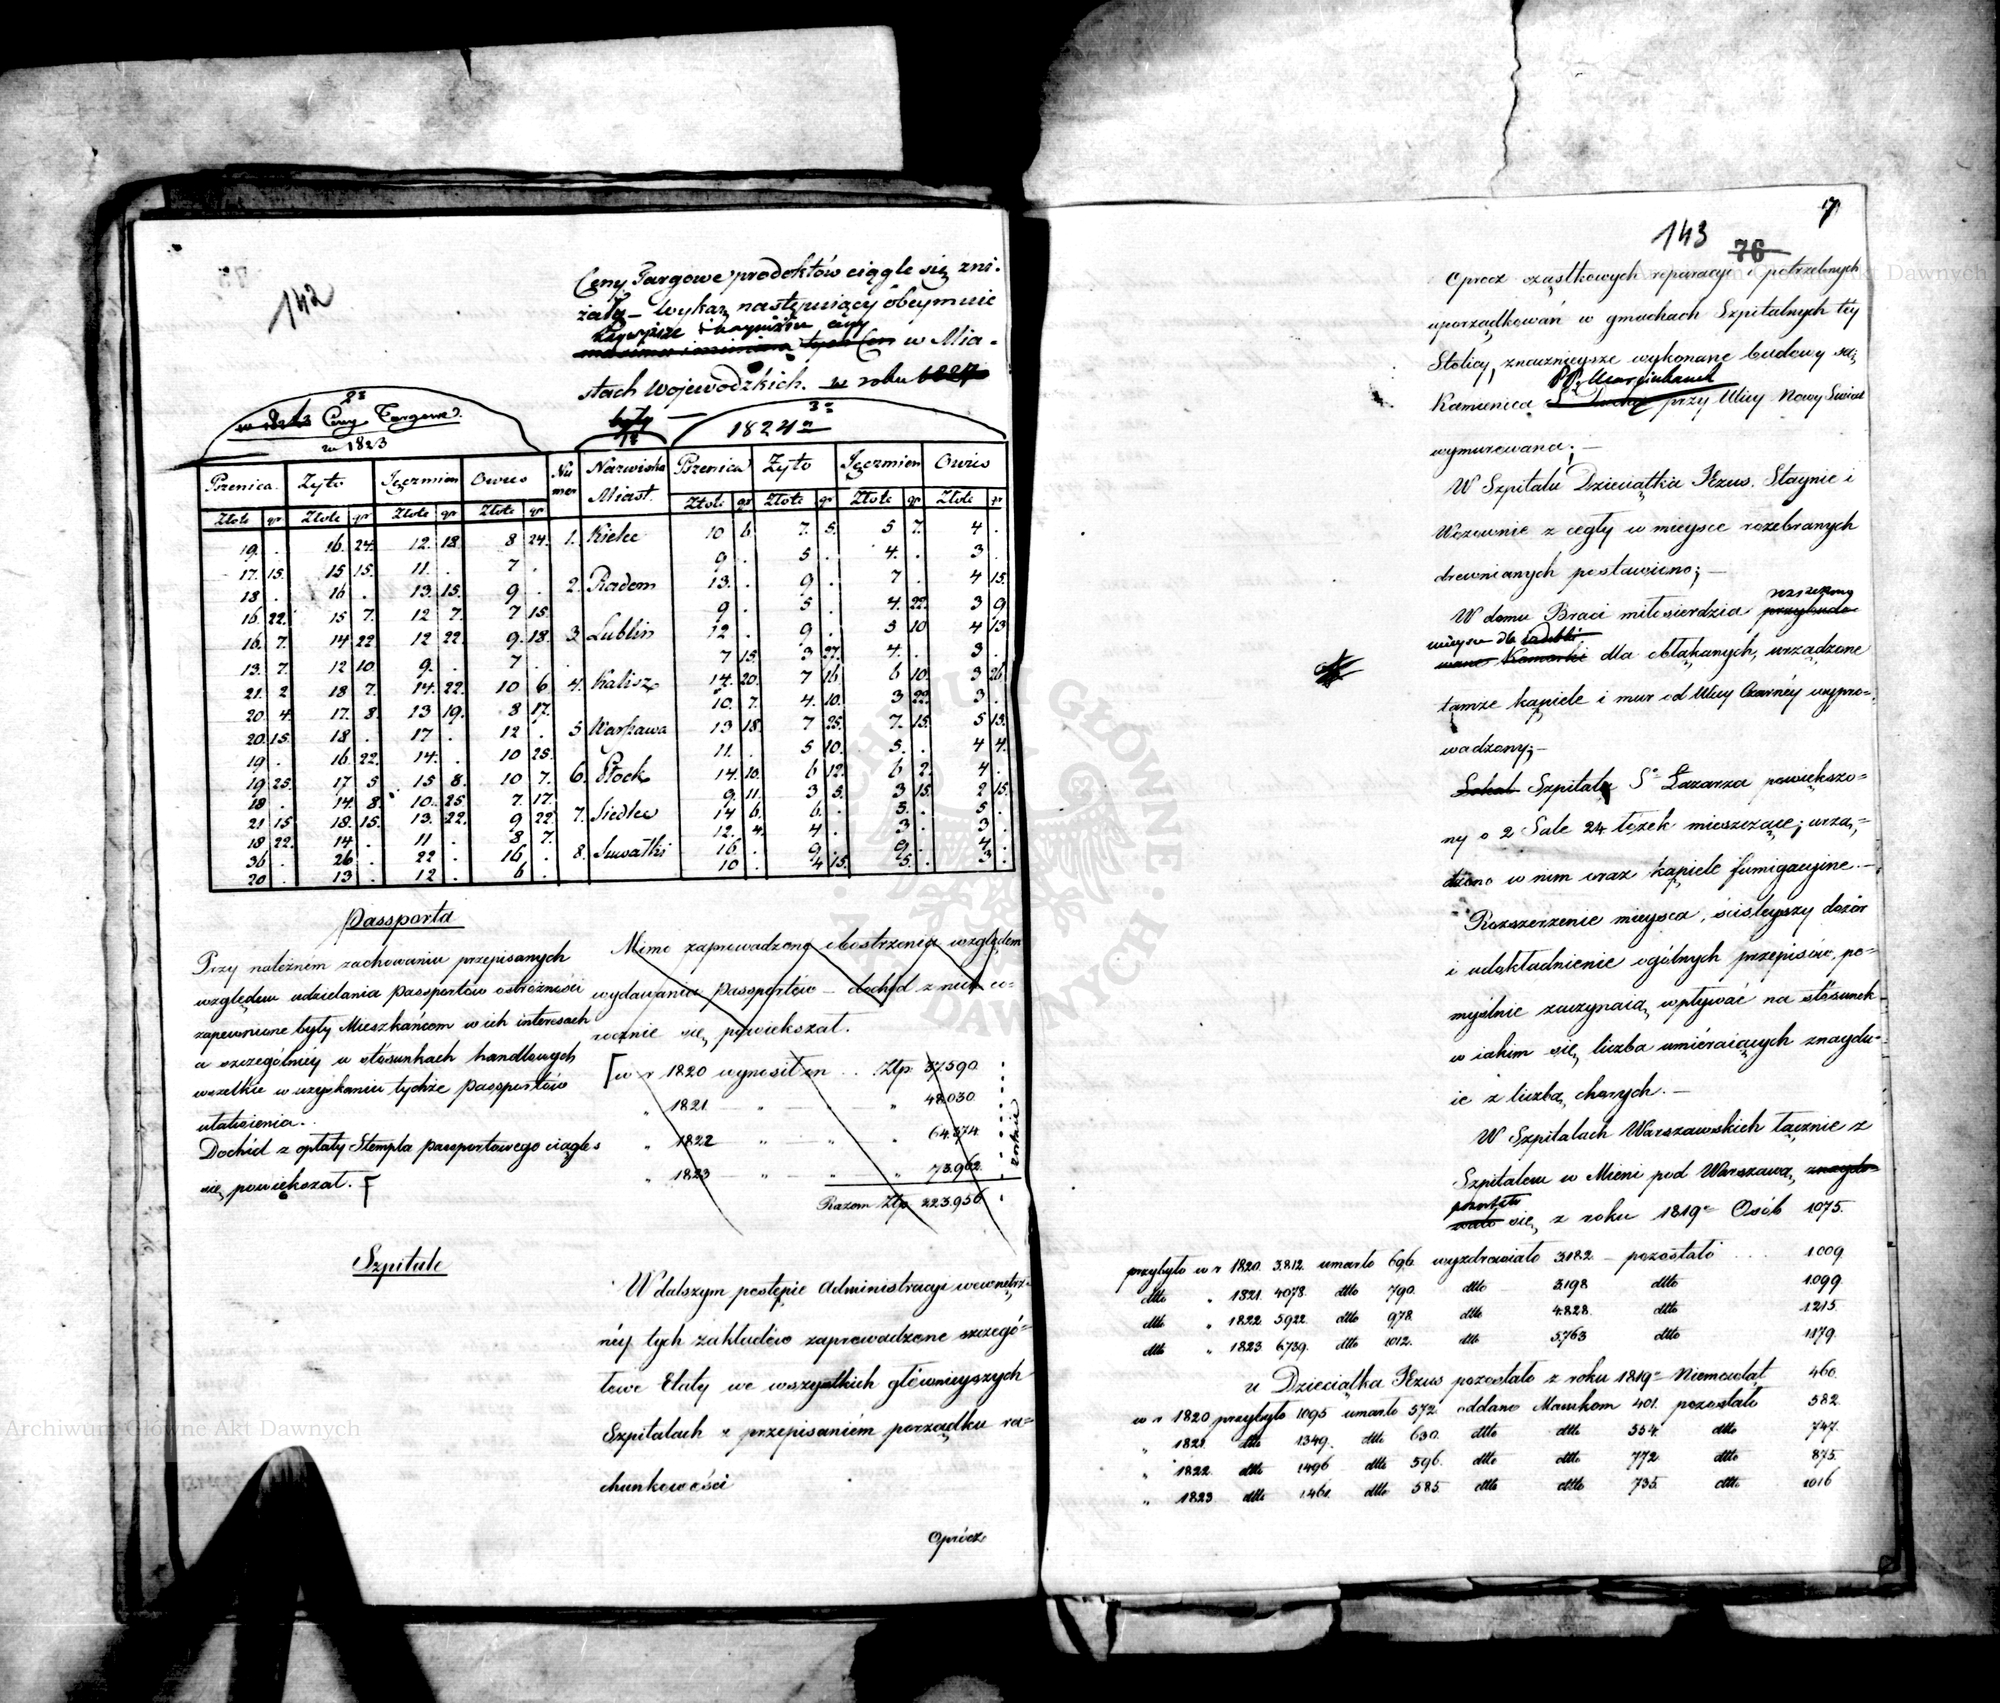 142
Ceny Targowe prodoktów ciągle się zni-
żały – wykaz następuiący obeymuie
naywyższe i nayniższe ceny
maxima i minima tych Cen w Mia-
stach Wojewódzkich. w roku 1824
były
2o
Ceny Targowe
w 1823
1o
3o
1824o
Pszenica. Zyto Jęczmien Owies Nu mer Nazwiska Miast. Pszenica Zyto Jęczmien Owies
Złote gr Złote gr Złote gr Złote gr Złote gr Złote gr Złote gr Złote gr
19. . 16. 24. 12. 18 8 24. 1. Kielce 10 6 7. 5. 5 7. 4 .
17. 15. 15 15. 11. . 7 . 9 . 5 . 4. . 3 .
18 . 16 . 13. 15. 9 . 2. Radom 13. . 9 . 7 . 4 15.
16. 22. 15 7. 12 7. 7 15. 9 . 5 . 4. 22. 3 9
16. 7. 14 22 12 22. 9. 18. 3. Lublin 12 . 9 . 5 10 4 13
13. 7. 12 10 9. . 7 . 7 15. 3 27. 4. . 3 .
21. 2 18 7. 14. 22. 10 6 4. Kalisz 14. 20. 7 16 6 10. 3 26
20. 4. 17. 8. 13 19. 8 17. 10. 7. 4. 10. 3 22. 3 .
20. 15. 18 . 17 . 12 . 5 Warszawa 13 18. 7 25. 7. 15. 5 13.
19 . 16. 22. 14. . 10 25. 11. . 5 10. 5. . 4 4.
19 25. 17 5 15 8. 10 7. 6. Płock 14. 10. 6 12. 6 2. 4 .
18 . 14 8. 10. 25 7. 17. 9. 11. 3 5. 3 15. 2 15.
21 15 18. 15. 13. 22. 9 22. 7. Siedlce 14 6. 6. . 5. . 5 .
18 22. 14. . 11 . 8 7. 12. 4. 4 . 3 . 3 .
36 . 26 . 22 . 16 . 8. Suwałki 16. . 9 . 9 . 4 .
20 . 13 . 12 . 6 . 10 . 4 15. 5. . 3 .
Passporta
Przy należném zachowaniu przepisanych
względem udzielania Passportów ostróżności
zapewnione były Mieszkańcom w ich interesach
a szczególniey w stosunkach handlowych
wszelkie w uzyskaniu tychże Passportów
ułatwienia.
Dochód z opłaty Stempla Passportowego ciągle
się powiększał.
Mimo zaprowadzone obostrzenia względem
wydawania Passportów – dochód z nich co-
rocznie się powiększał.
w r 1820 wynosił on .. Złp 37590.
" 1821. — " — " 48.030.
" 1822 " — " " 64.374.
" 1823 " — " — " 73.962.
Razem Złp. 223.956.
Szpitale
W dalszym postępie Administracyi wewnętrz-
néy tych zakładów zaprowadzone szczegó-
łowe Etaty we wszystkich głównieyszych
Szpitalach z przepisaniém porządku ra-
chunkowości
Oprócz
143
76
Oprócz cząstkowych reparacyi i potrzebnych
uporządkowań w gmachach Szpitalnych tey
Stolicy, znacznieysze wykonane budowy są;
PP. Marcinkanek
Kamienica S. Ducha przy Ulicy Nowy Swiat
wymurowana; —
W Szpitalu Dzieciątka Jezus. Staynie i
Wozownie z cegły w mieysce rozebranych
drewnianych postawiono; —
rozszerzono
W domu Braci miłosierdzia przybudo-
mieysce dla
wano Komorki dla obłąkanych, urządzone
tamże kąpiele i mur od Ulicy Czarnéy wypro-
wadzony; —
Lokal Szpitala So Łazarza powiększo-
ny o 2 Sale 24 łożek mieszczące; urzą-
dzono w nim oraz kąpiele fumigacyine. —
Rozszerzenie mieysca, ścisleyszy dozór
i udokładnienie ogólnych przepisów, po-
myślnie zaczynaią wpływać na stósunek
w iakim się liczba umieraiących znaydu-
ie z liczbą chorych. —
W Szpitalach Warszawskich łącznie z
Szpitalem w Mieni pod Warszawą, znaydo-
pozostało
wało się z roku 1819o Osób 1075.
przybyło w r 1820. 3.812. umarło 696. wyzdrowiało 3182. — pozostało .... 1.009.
ditto " 1821. 4078. ditto 790. ditto 3.198 ditto 1.099.
ditto " 1822. 5922. ditto 978. ditto 4.828. ditto 1.215.
ditto " 1823. 6.739. ditto 1012. ditto 5.763 ditto 1.179.
u Dzieciątka Jezus pozostało z roku 1819o Niemowląt 460.
w r 1820 przybyło 1095 umarło 572. oddano Mamkom 401. pozostało 582.
" 1821. ditto 1349. ditto 630. ditto ditto 554. ditto 747.
" 1822. ditto 1496 ditto 596. ditto ditto 772. ditto 875.
" 1823 ditto 1461. ditto 585. ditto ditto 735. ditto 1016
Archiwum Główne Akt Dawnych
Archiwum Główne Akt Dawnych
ARCHIWUM GŁÓWNE AKT DAWNYCH